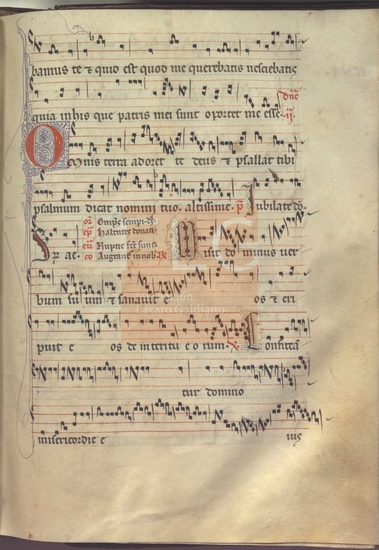 bamus te & quid est quod me querebatis nesciebatis
quia in his que patris mei sunt oportet me esse. dnc ii
Omnis terra adoret te deus & psallat tibi
psalmum dicat nomini tuo altissime. p Iubilate do
or Omps sempi
ep Habentes donati
eu Nuptie fce sunt
Misit dominus ver
co
bum suum & sanauit e os & eri
puit e os de interitu e orum. Confitea
tur domino
misericordie e ius